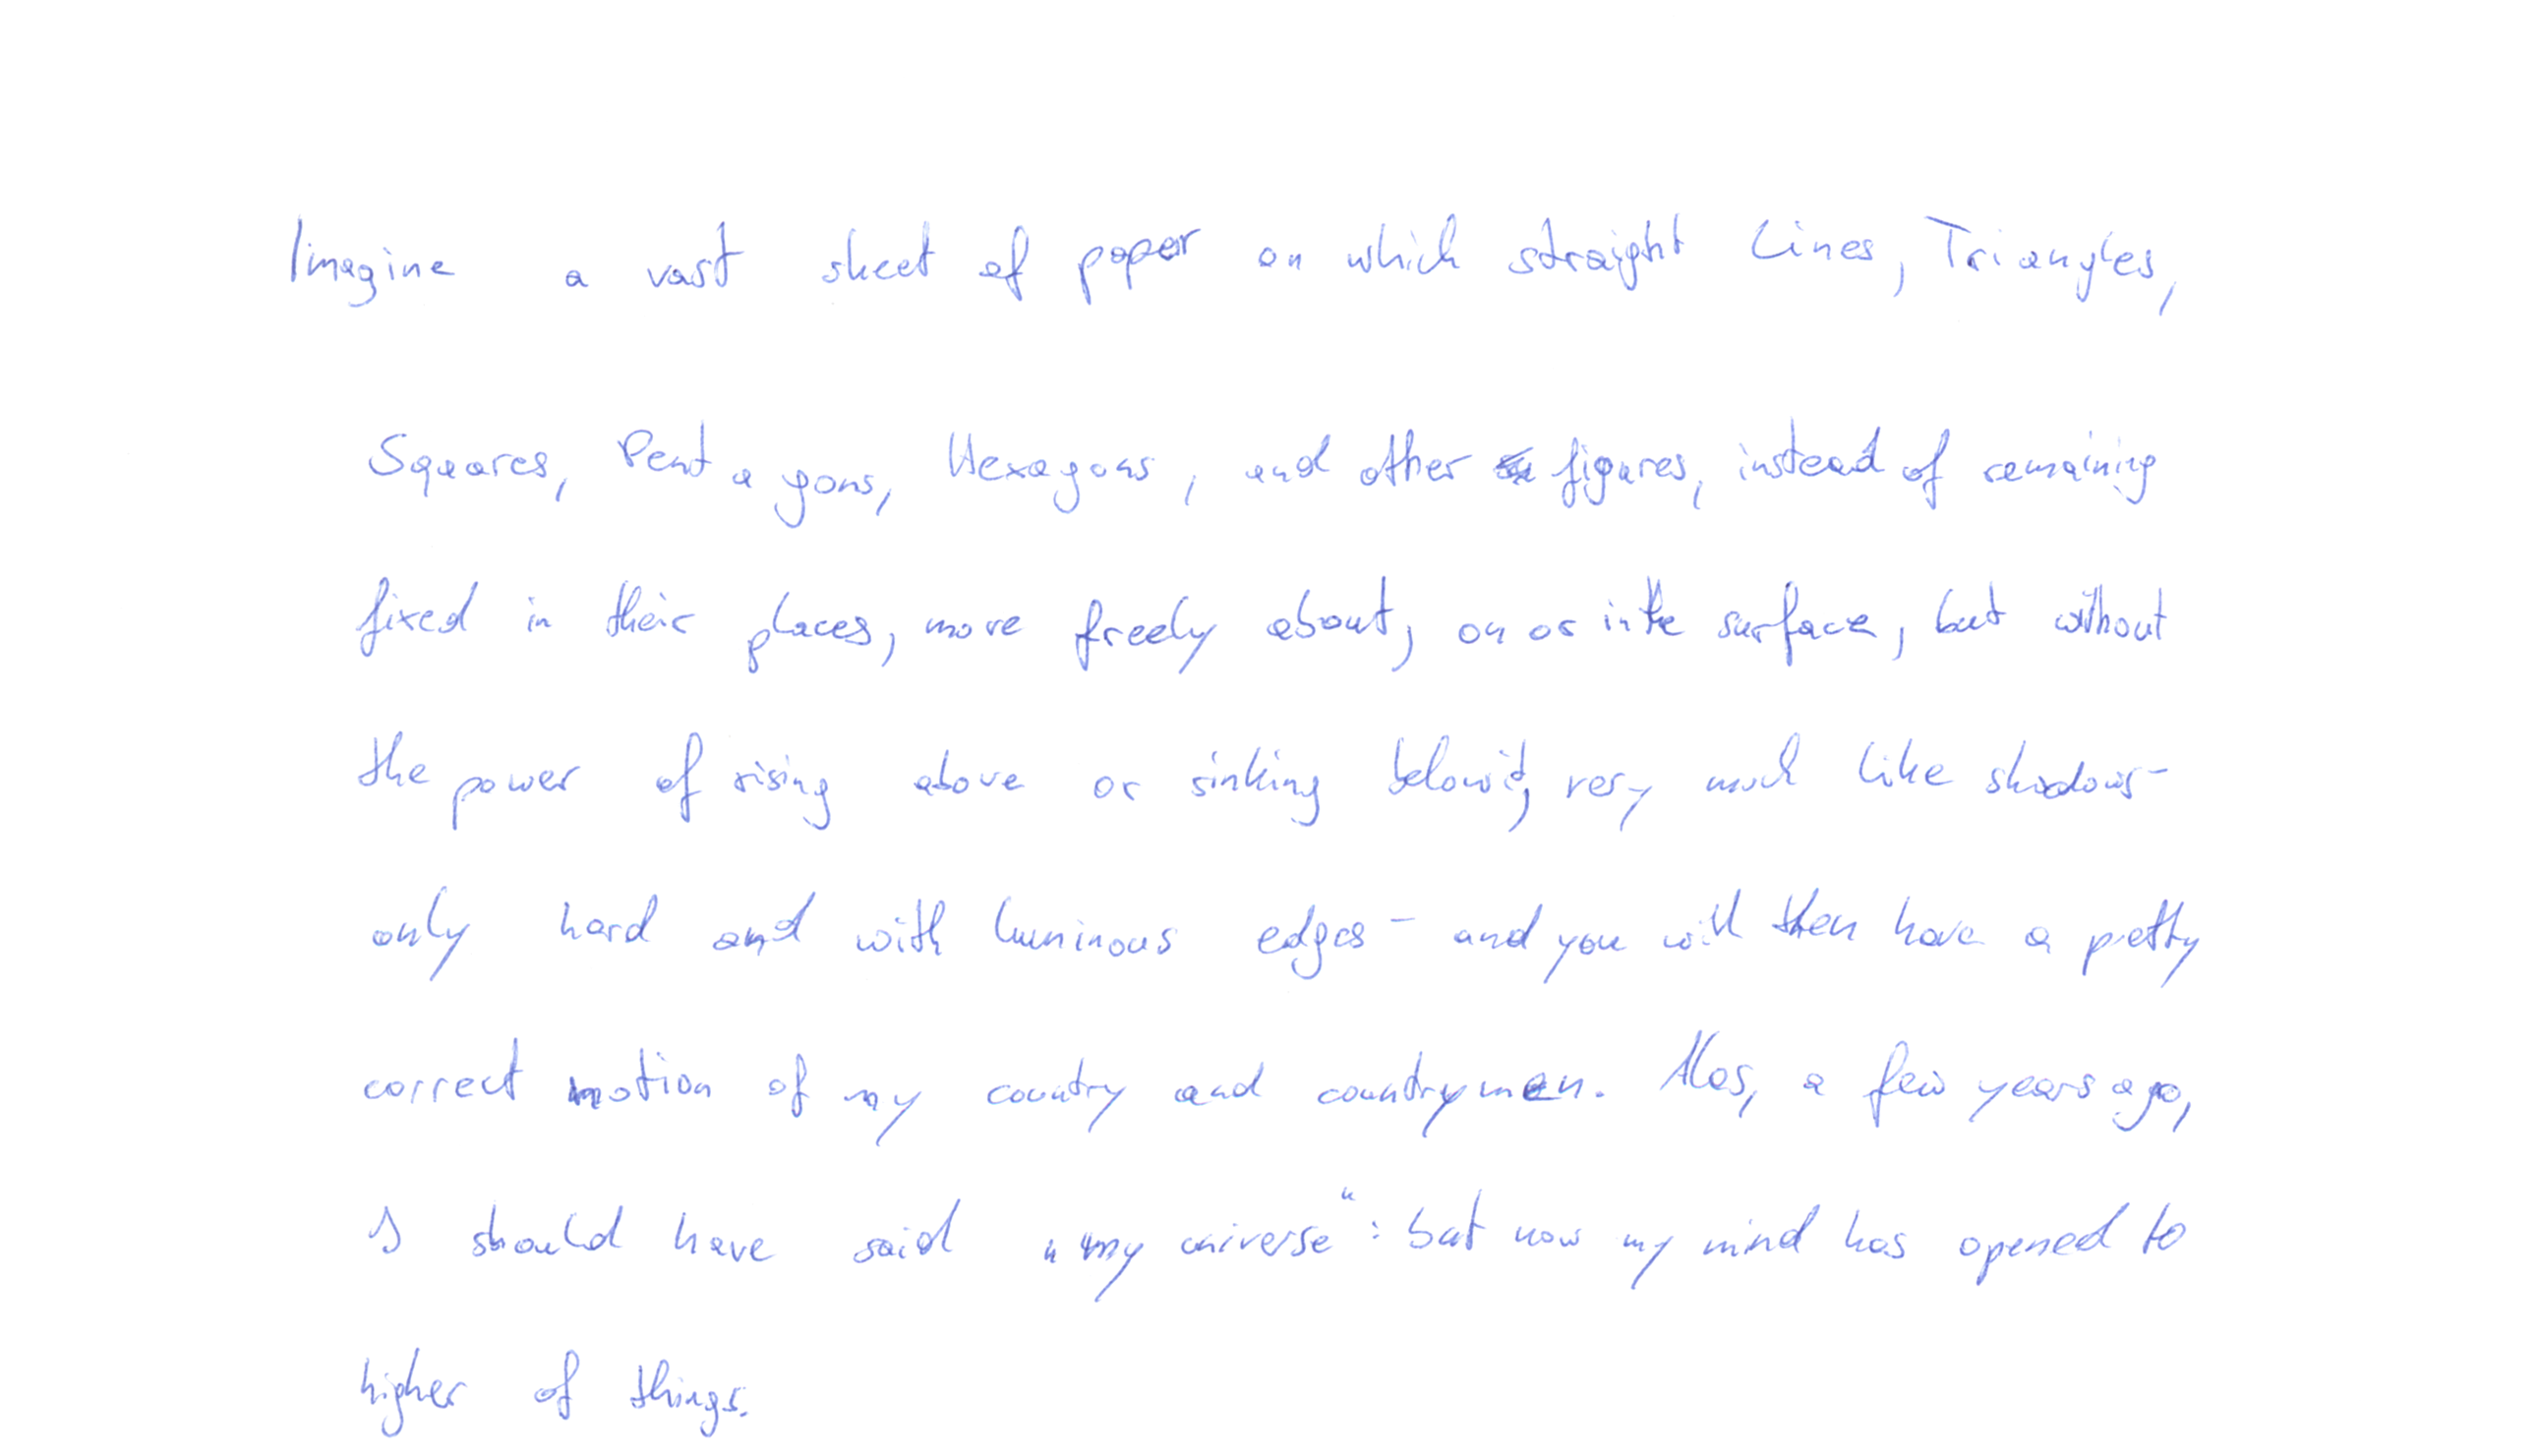 Imagine a vast sheet of paper on which straight Lines, Triangles,
Squares, Pentagons, Hexagons, and other figures, instead of remaining
fixed in their places, move freely about, on or in the surface, but without
the power of rising above or sinking below it, very much like shadows -
only hard and with luminous edges - and you will then have a pretty
correct notion of my country and countrymen. Alas, a few years ago,
I should have said "my universe": but now my mind has opened to
higher of things.